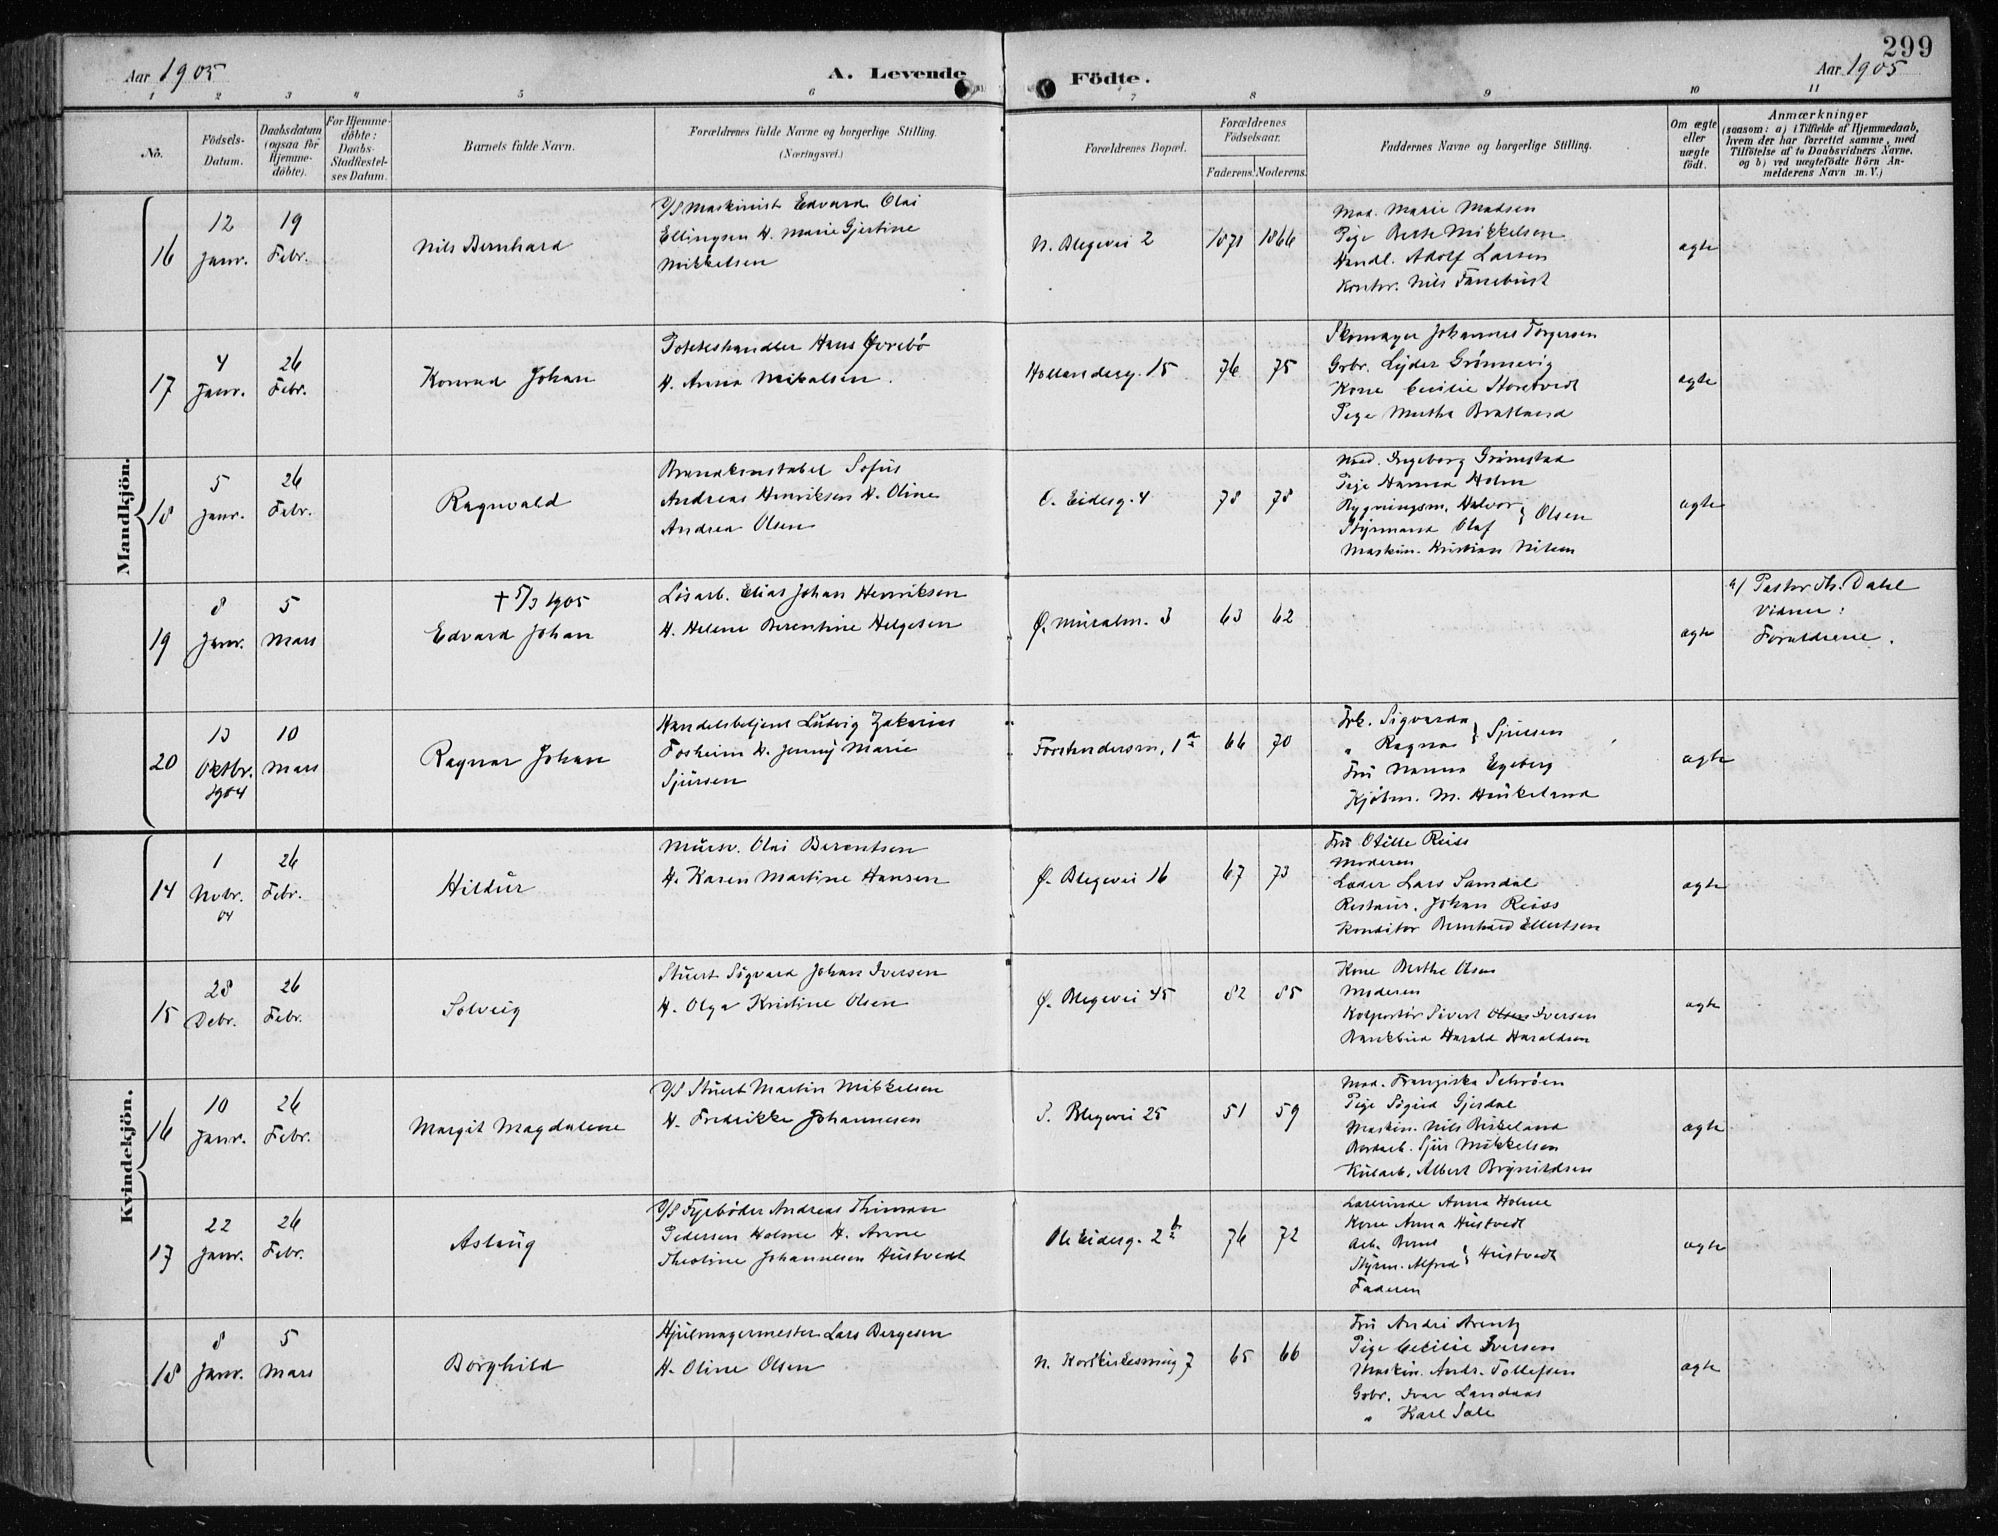 299
Aar 1905
A. Levende
Födte.
Aar 1905
1 2 3 4 5 6 7 8 9 10 11
No.
Födsels-
Datum.
Daabsdatum
(ogsaa for
Hjemme-
döbte).
For Hjemme-
döbte:
Daabs-
Stadfæstel-
ses Datum.
Barnets fulde Navn.
Forældrenes fulde Navne og borgerlige Stilling.
(Næringsvei.)
Forældrenes Bopæl.
Forældrenes
Födselsaar.
Faderens. Moderens.
Faddernes Navne og borgerlige Stilling.
Om ægte
eller
uægte
födt.
Anmærkninger
(saasom: a) i Tilfælde af Hjemmedaab,
hvem der har forrettet samme, med
Tilföielse af to Daabsvidners Navne.
og b) ved uægtefödte Börn An-
melderens Navn m. V.)
Mandkjön.
16
12
Janr.
19
Febr.
Nils Bernhard
D/S Maskinist Edvard Olai
Ellingsen H. Marie Gjertine
Mikkelsen
N. Blegevei 2
1871 1866
Mad. Marie Madsen
Pige Berte Mikkelsen
Handl. Adolf Larsen
Kontor. Nils Fanebust
ægte
17
4
Janr.
26
Febr.
Konrad Johan
Pottehandler Hans Øvrebö
H. Anna Mikalsen.
Hollenderg. 15
76 75
Skomager Johannes Torgersen
Grbr. Lyder Grönnevig
Kone Cecilie Storetvedt
Pige Martha Bratland
ægte
18
5
Janr.
26
Febr.
Ragnvald
Brandkonstabel Sofus
Andreas Henriksen H. Oline
Andrea Olsen
O. Eidesg. 4
78 78
Mad. Ingeborg Grimstad
Pige Hanna Holm
Bygningsm. Halvor } Olsen
Styrmand Olaf
Maskin. Kristian Nilsen
ægte
19
8
Janr.
5
Mars
† 5/3 1905
Edvard Johan
Lösarb. Elias Johan Henriksen
H. Helene Berentine Helgesen
Ø. Muralm. 3
63 62
ægte
a/ Pastor Th. Dahl
Vidner:
Forældrene.
20
13
Oktbr.
1904
10
Mars
Ragnar Johan
Handelsbetjent Ludvig Zakarias
Fosheim H. Jenny Marie
Sjursen
Forstandersm. 1a
66 70
Frk. Sigvarda } Sjursen
" Ragna
Fru Nanna Egeberg
Kjöbm. M. Haukeland
ægte
Kvindekjön.
14
1
Novbr.
04
26
Febr.
Hildur
Mursv. Olai Berentsen
H. Karen Martine Hansen
Ø. Blegevei 16
67 73
Fru Otilie Reiss
Moderen
Læder Lars Samdal
Restaur. Johan Reiss
Konditor Bernhard Ellertsen
ægte
15
28
Debr.
26
Febr.
Solveig
Stuert Sigvard Johan Iversen
H. Olga Kristine Olsen
Ø. Blegevei 45
82 85
Kone Berthe Olsen
Moderen
Kolportör Sivert Olsen Iversen
Bankbud Harald Haraldsen
ægte
16
10
Janr.
26
Febr.
Margit Magdalene
D/S Stuert Martin Mikkelsen
H. Fredrikke Johannesen
S. Blegevei 25
51 59
Mad. Franziska Schröen
Pige Sigrid Gjesdal
Maskin. Nils Birkeland
Bordarb. Sjur Mikkelsen
Kularb. Albert Brynildsen
ægte
17
22
Janr.
26
Febr.
Aslaug
D/S Fyrböder Andreas Thiman
Pedersen Holme H. Anne
Theoline Johannesen Hustvedt
Ole Eidesg. 2b
76 72
Lærerinde Anna Holme
Kone Anna Hustvedt
Arb. Bernt
Styrm. Alfred } Hustvedt
Faderen
ægte
18
8
Janr.
5
Mars
Borghild
Hjulmagermester Lars Bergesen
H. Oline Olsen
N. Korskirkesmug 7
65 66
Fru Andrè Arentz
Pige Cecilie Iversen
Maskin. Andr. Tollefsen
Grbr. Ivar Landaas
" Karl Sale
ægte